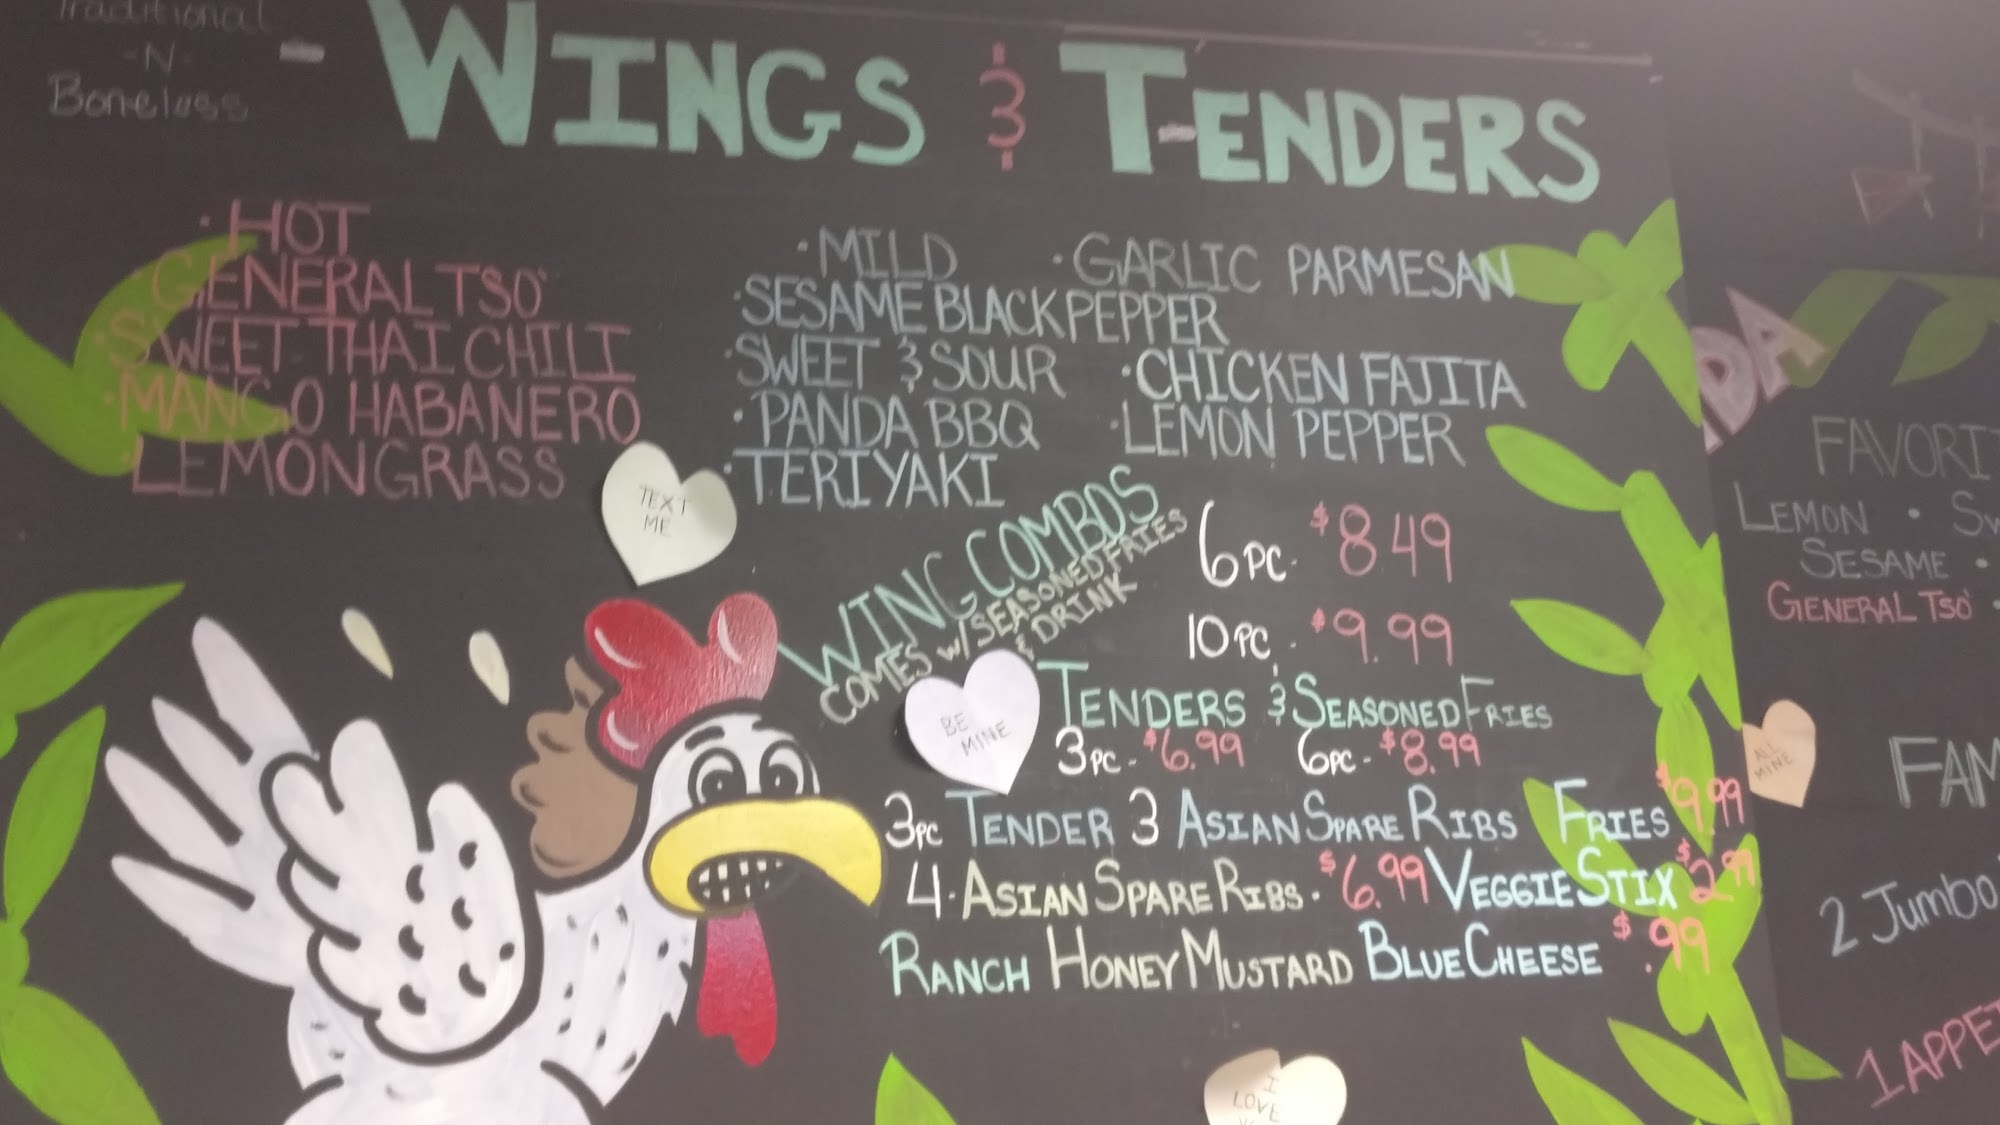 Traditional
-N-
Boneless
- WINGS & TENDERS
· HOT
· GENERAL TSO'
· SWEET THAI CHILI
· MANGO HABANERO
· LEMONGRASS
· MILD · GARLIC PARMESAN
· SESAME BLACK PEPPER
· SWEET & SOUR · CHICKEN FAJITA
· PANDA BBQ · LEMON PEPPER
· TERIYAKI
TEXT
ME
WING COMBOS
COMES W/ SEASONED FRIES
& DRINK
6PC- $8.49
10PC- $9.99
BE
MINE
TENDERS & SEASONED FRIES
3PC- $6.99 6PC- $8.99
3PC TENDER 3 ASIAN SPARE RIBS FRIES $9.99
4·ASIAN SPARE RIBS· $6.99 VEGGIE STIX $2.99
RANCH HONEY MUSTARD BLUE CHEESE $.99
I
LOVE
DA
FAVORI
LEMON · SW
SESAME ·
GENERAL TSO' ·
ALL
MINE
FAM
2 Jumbo
1 APPE